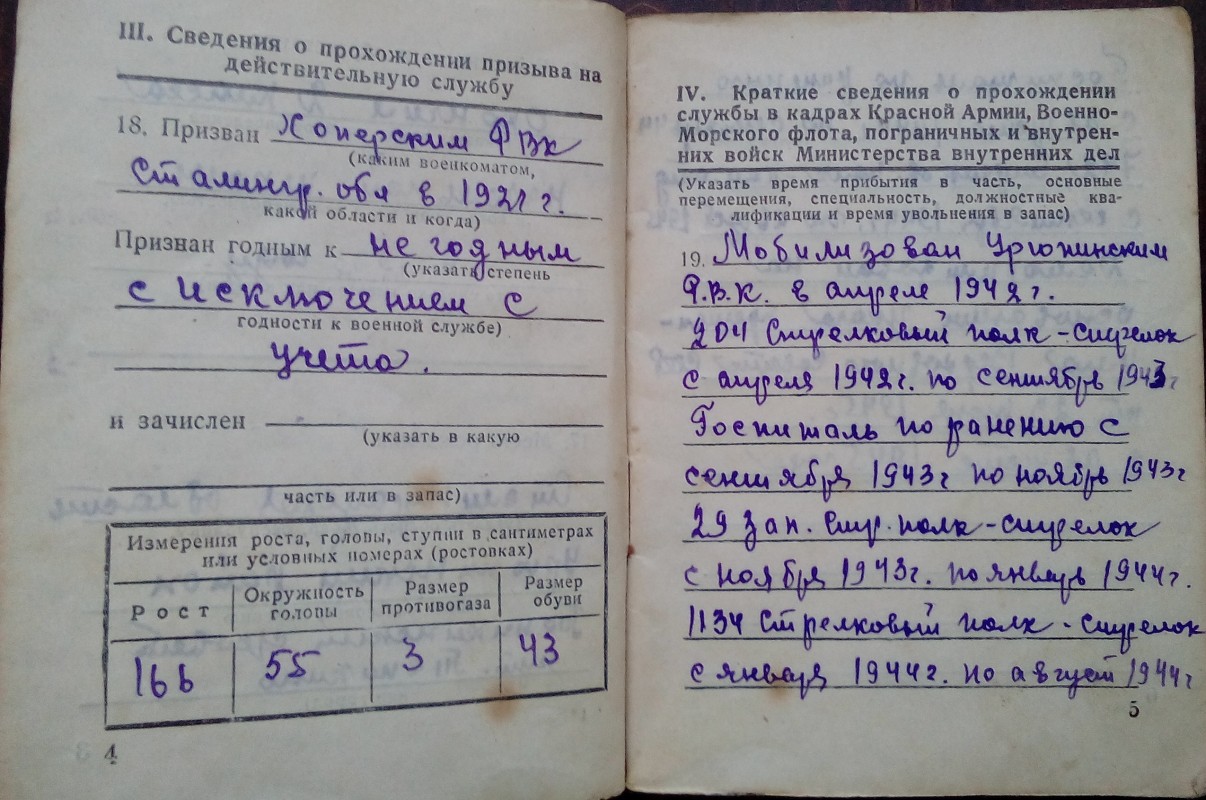 III. Сведения о прохождении призыва на
действительную службу
18. Призван Хоперским РВК
(каким военкоматом,
Сталингр. обл в 1921 г.
какой области и когда)
Признан годным к не годным
(указать степень
с исключением с
годности к военной службе)
учета.
и зачислен
(указать в какую
часть или в запас)
Измерения роста, головы, ступни в сантиметрах
или условных номерах (ростовках)
Рост
Окружность
головы
Размер
противогаза
Размер
обуви
166 55 3 43
4
IV. Краткие сведения о прохождении
службы в кадрах Красной Армии, Военно-
Морского флота, пограничных и внутрен-
них войск Министерства внутренних дел
(Указать время прибытия в часть, основные
перемещения, специальность, должностные ква-
лификации и время увольнения в запас)
19. Мобилизован Урюпинским
Р.В.К. в апреле 1942 г.
204 Стрелковый полк - стрелок
с апреля 1942 г. по сентябрь 1943 г
Госпиталь по ранению с
сентября 1943 г по ноябрь 1943 г
29 зап. Стр. полк - стрелок
с ноября 1943 г. по январь 1944 г.
1134 Стрелковый полк - стрелок
с января 1944 г. по август 1944 г
5